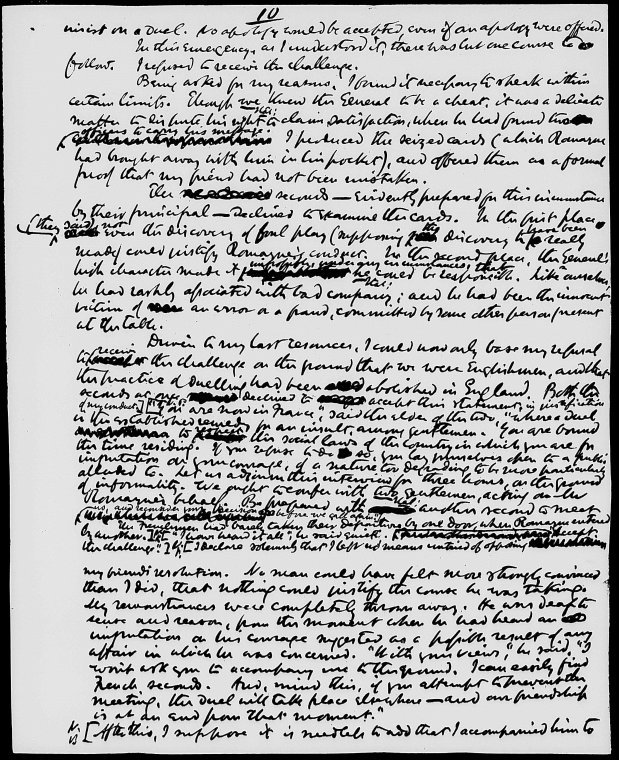 10
insist on a duel. No apology would be accepted, even if an apology were offered.
In this emergency, as I understood it, there was but one course to
follow. I refused to receive the challenge.
Being asked for my reasons, I found it necessary to speak within
certain limits. Though we knew the General to be a cheat, it was a delicate
matter to dispute his right to claim satisfaction, when he had found two
officers to carry his message. I produced the seized cards (which Romayne
had brought away with him in his pocket), and offered them as a formal
proof that my friend had not been mistaken.
The seconds — evidently prepared for this circumstance
by their principal — declined to examine the cards. In the first place,
(they said) not even the discovery of foul play (supposing the discovery to have been really
made) could justify Romayne's conduct. In the second place, the General's
high character made it impossible, under any circumstances, that he could be responsible. Like ourselves,
he had rashly associated with bad company; and he had been the innocent
victim of an error or a fraud, committed by some other person present
at the table.
Driven to my last resource, I could now only base my refusal
to receive the challenge on the ground that we were Englishmen, and that
the practice of duelling had been abolished in England. Both the
seconds at once declined to accept this statement in justification
of my conduct. "You are now in France," said the elder of the two, "where a duel
is the established remedy for an insult, among gentlemen. You are bound
to the social laws of the country in which you are for
the time residing. If you refuse to do so, you lay yourselves open to a public
imputation on your courage, of a nature too degrading to be more particularly
alluded to. Let us adjourn this interview for three hours, on the ground
of informality. We ought to confer with two gentlemen, acting on
Romayne's behalf. Be prepared with another second to meet
us, and reconsider your decision before we call again."
The Frenchmen had barely taken their departure by one door, when Romayne entered
by another. "I have heard it all," he said quietly. "Accept
the challenge." I declare solemnly that I left no means untried of opposing
my friend's resolution. No man could have felt more strongly convinced
than I did, that nothing could justify the course he was taking.
My remonstrances were completely thrown away. He was deaf to
sense and reason, from the moment when he had heard an
imputation on his courage suggested as a possible result of any
affair in which he was concerned. "With your views," he said, "I
won't ask you to accompany me to the ground. I can easily find
French seconds. And, mind this, if you attempt to prevent the
meeting, the duel will take place elsewhere — and our friendship
is at an end from that moment."
[After this, I suppose it is needless to add that I accompanied him to